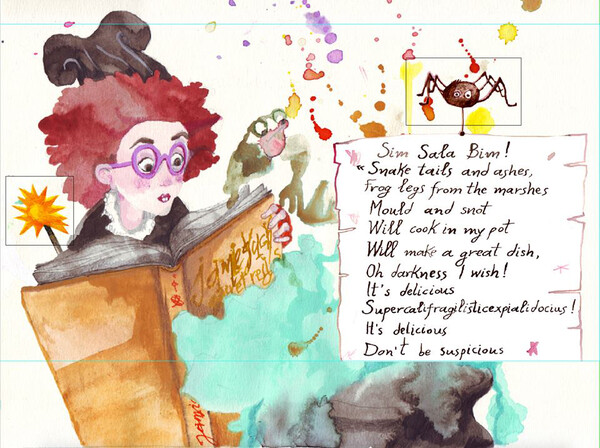 Sim Sala Bim!
"Snake tails and ashes,
Frog legs from the marshes
Mould and snot
Will cook in my pot
Will make a great dish,
Oh darkness I wish!
It's delicious
Supercalifragilisticexpialidocius!
It's delicious
Don't be suspicious